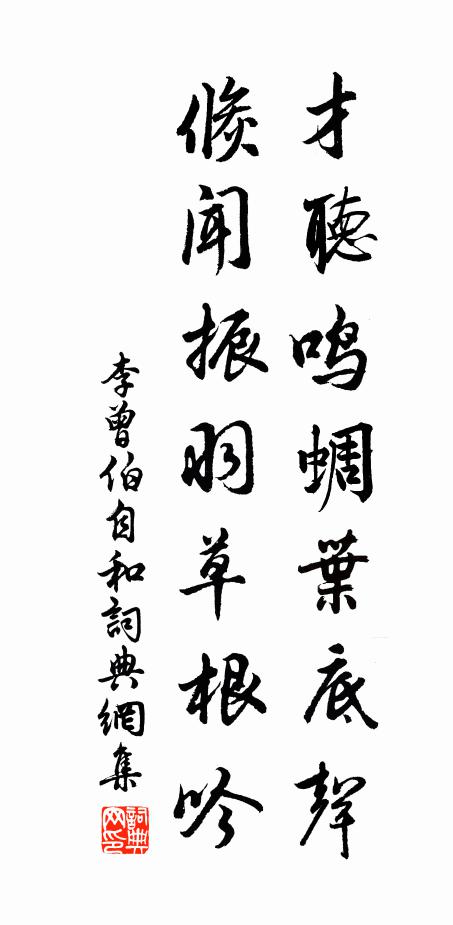 才聽鳴蜩葉底聲
倏闻振羽草根吟
李曾伯自和詞典網集
詞典网印